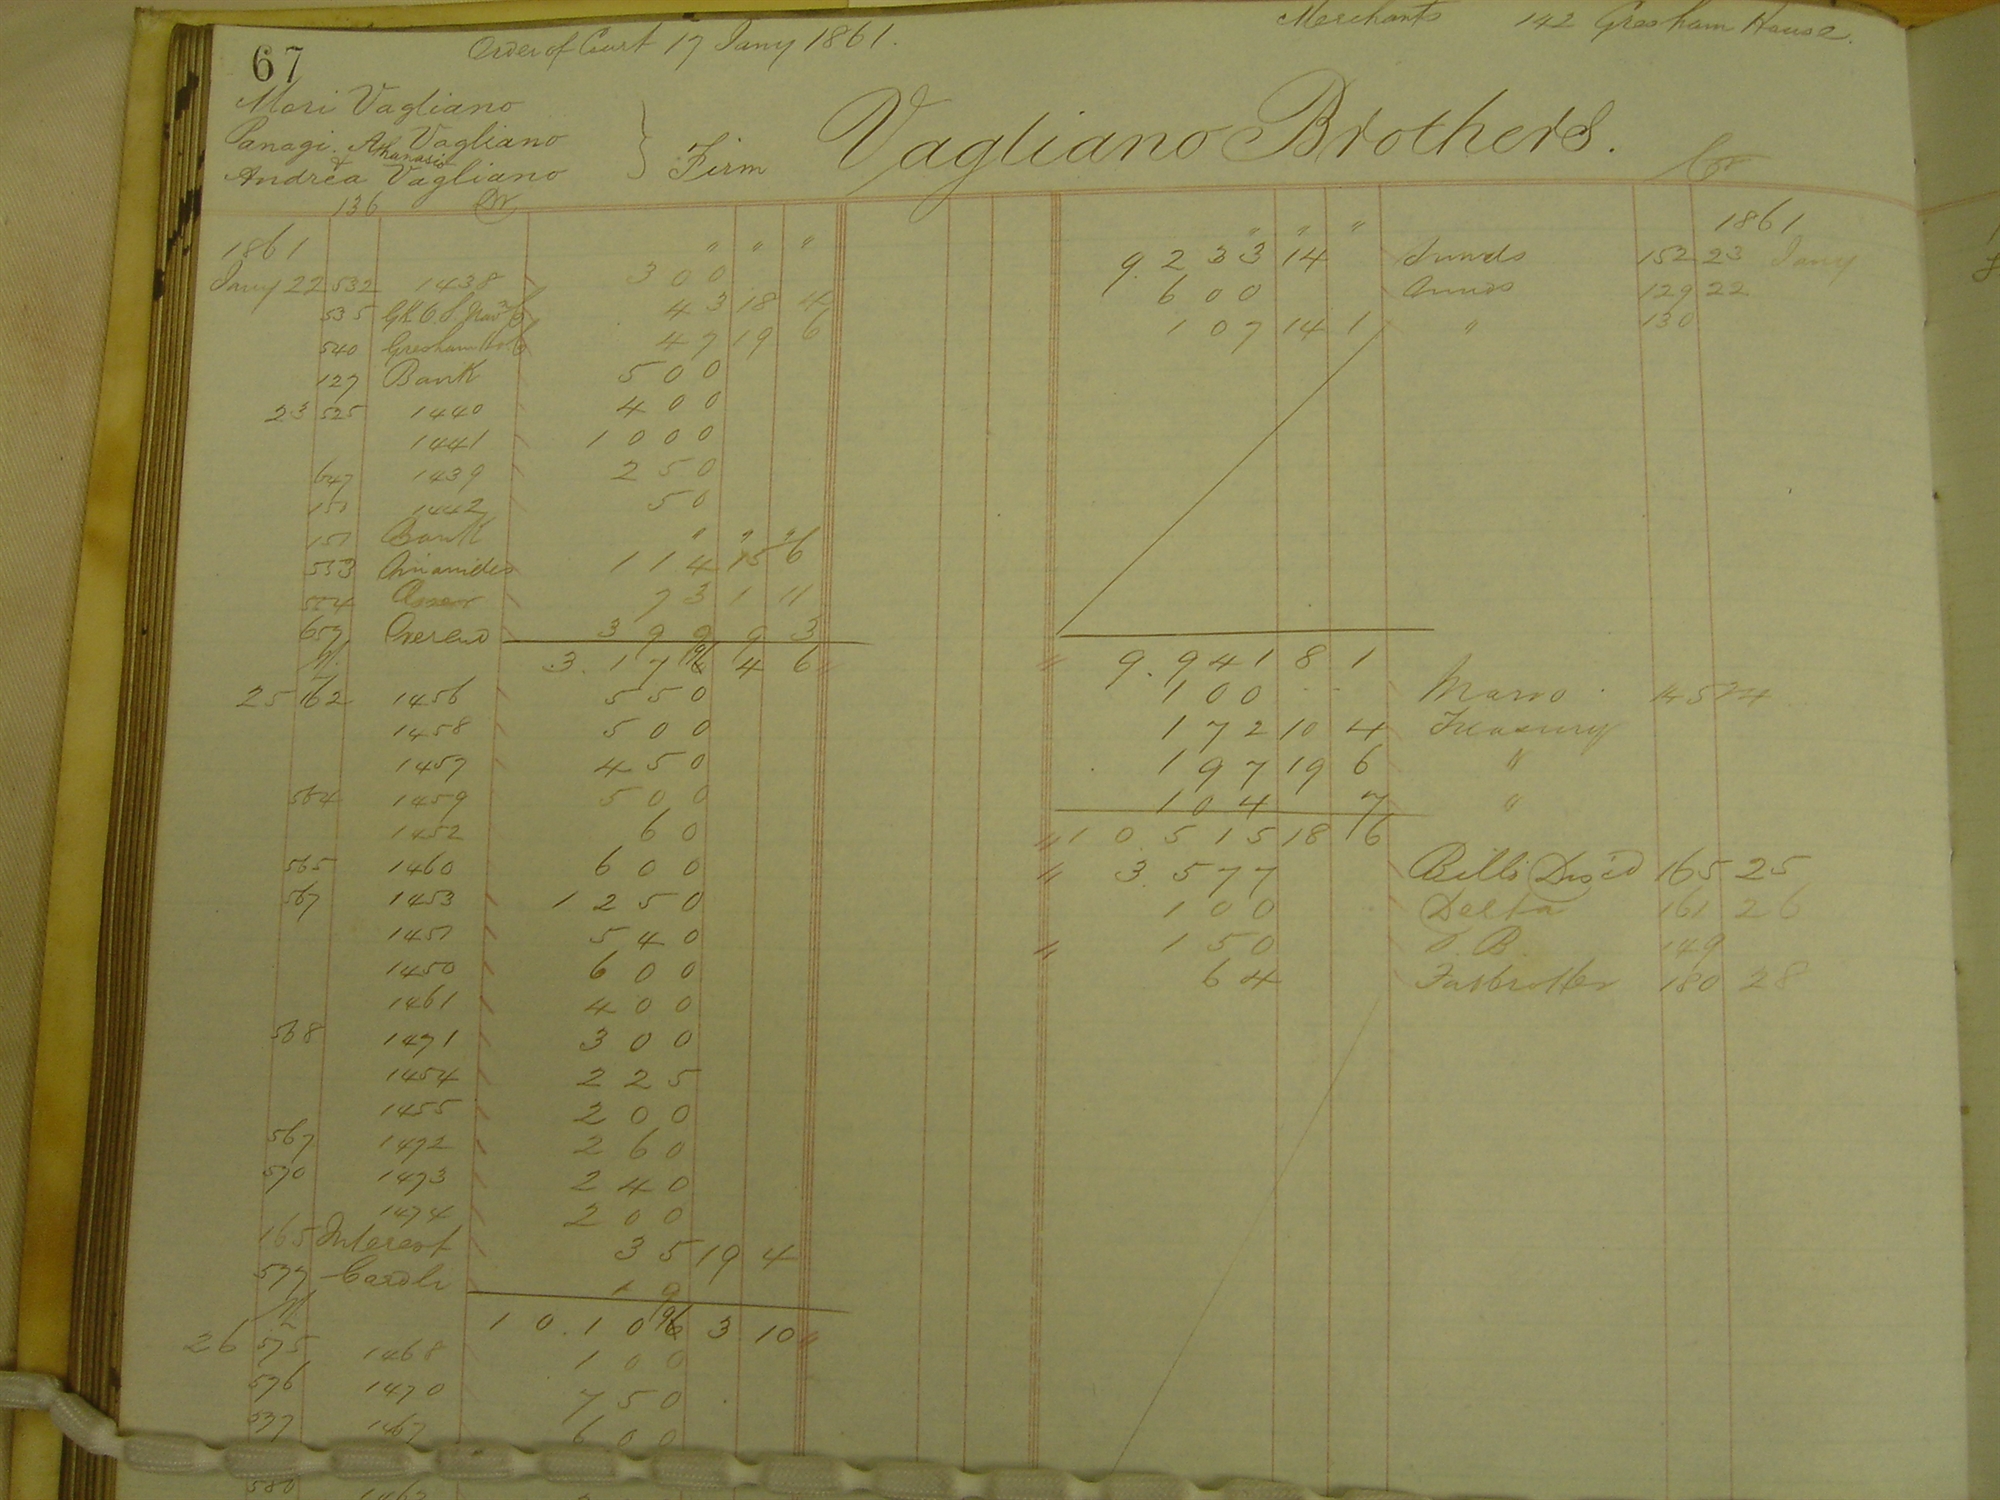 67 Order of Court 17 Jany 1861. Merchants 142 Gresham House.
Mari Vagliano
Panagi Athanasio Vagliano
& Andrea Vagliano
Firm Vagliano Brothers.
136 Dr Cr
1861 " " " " " " 1861
Jany 22 532 1438 300 9.233 14 Sunds 152 23 Jany
535 43 18 4 600 Sunds 129 22
540 Gresham Ho 47 19 6 107 14 1 " 130
127 Bank 500
23 525 1440 400
1441 1000
647 1439 250
151 1442 50
151 Bank " " "
553 114 15 6
554 73 1 11
657 Overend 399 9 3
3.179 4 6 9.941 8 1
25 162 1456 550 100
1458 500 172 10 4 Treasury
1457 450 197 19 6 "
564 1459 500 104 7 "
1452 60 10.515 18 6
565 1460 600 3.577 Bills Disc'd 165 25
567 1453 1250 100 Delta 161 26
1451 540 150 149
1450 600 64 180 28
1461 400
568 1471 300
1454 225
1455 200
567 1472 260
570 1473 240
1474 200
165 Interest 35 19 4
577 19
10.109 3 10
26 575 1468 100
576 1470 750
577 1467 600
580 1462